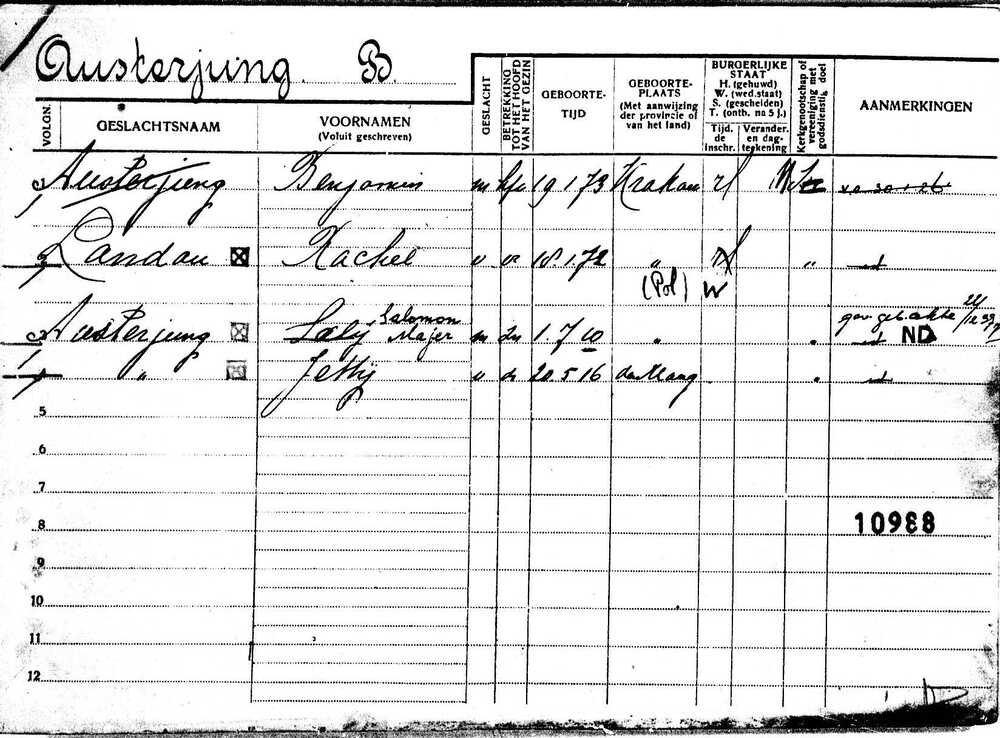 Austerjung. B.
VOLGN. GESLACHTSNAAM VOORNAMEN (Voluit geschreven) GESLACHT BETREKKING TOT HET HOOFD VAN HET GEZIN GEBOORTE-TIJD GEBOORTE-PLAATS (Met aanwijzing der provincie of van het land) BURGERLIJKE STAAT H. (gehuwd) W. (wed.staat) S. (gescheiden) T. (ontb. na 5 j.) Tijd. de inschr. Verander. en dag-teekening Kerkgenootschap of vereeniging met godsdienstig doel AANMERKINGEN
1 Austerjung Benjamin m hfd 19 1.73 Krakau H
Landau Rachel v vr 18 1.72 " H "
(Pol) W
Salomon
Austerjung Saly Majer m zn 1.7 10 " " ND
" Jetty v dr 20.5 16 "
5
6
7
8 10988
9
10
11
12